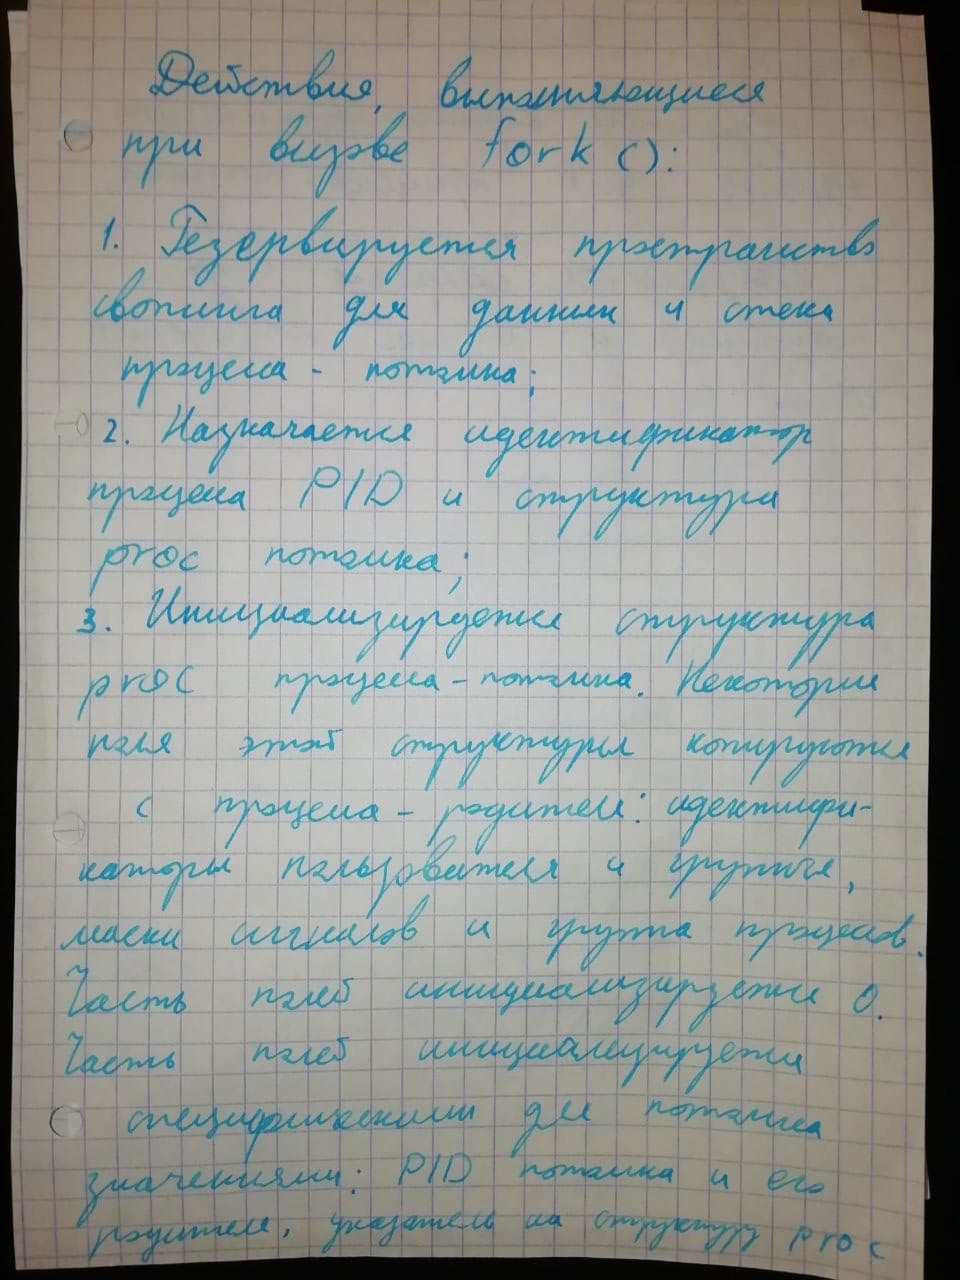 Действия, выполняющиеся
при вызове fork():
1. Резервируется пространство
свопинга для данных и стека
процесса - потомка;
2. Назначается идентификатор
процесса PID и структура
proc потомка;
3. Инициализируется структура
proc процесса-потомка. Некоторые
поля этой структуры копируются
с процесса - родителя: идентифи-
каторы пользователя и группы,
маски сигналов и группа процессов.
Часть полей инициализируется 0.
Часть полей инициализируется
специфическими для потомка
значениями: PID потомка и его
родителя, указатель на структуру proc